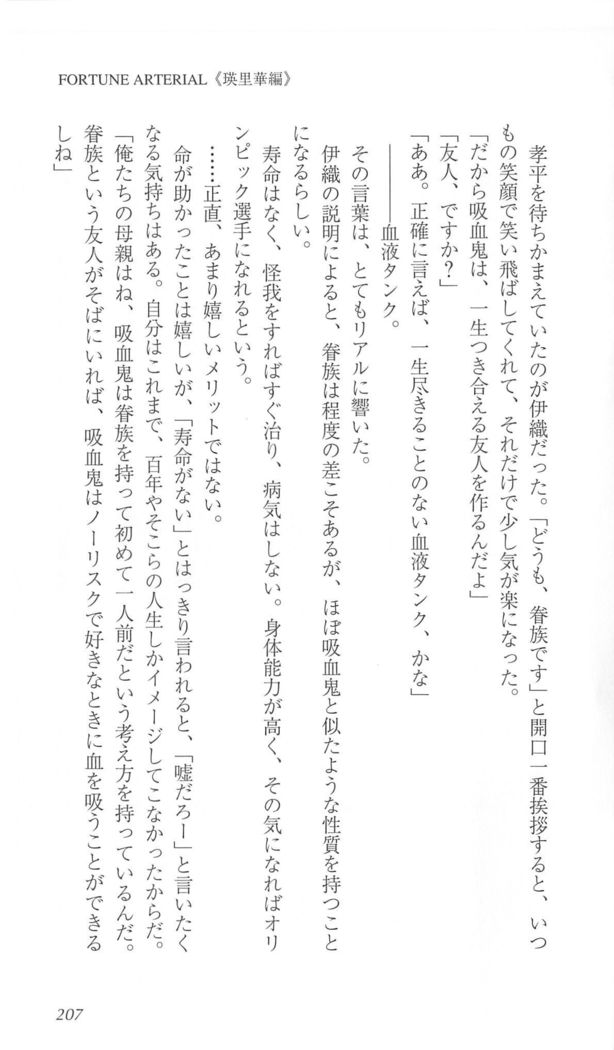 FORTUNE ARTERIAL《瑛里華編》
　孝平を待ちかまえていたのが伊織だった。「どうも、眷族です」と開口一番挨拶すると、いつ
もの笑顔で笑い飛ばしてくれて、それだけで少し気が楽になった。
「だから吸血鬼は、一生つき合える友人を作るんだよ」
「友人、ですか？」
「ああ。正確に言えば、一生尽きることのない血液タンク、かな」
　――血液タンク。
　その言葉は、とてもリアルに響いた。
　伊織の説明によると、眷族は程度の差こそあるが、ほぼ吸血鬼と似たような性質を持つこと
になるらしい。
　寿命はなく、怪我をすればすぐ治り、病気はしない。身体能力が高く、その気になればオリ
ンピック選手になれるという。
　……正直、あまり嬉しいメリットではない。
　命が助かったことは嬉しいが、「寿命がない」とはっきり言われると、「嘘だろー」と言いたく
なる気持ちはある。自分はこれまで、百年やそこらの人生しかイメージしてこなかったからだ。
「俺たちの母親はね、吸血鬼は眷族を持って初めて一人前だという考え方を持っているんだ。
眷族という友人がそばにいれば、吸血鬼はノーリスクで好きなときに血を吸うことができる
しね」
207